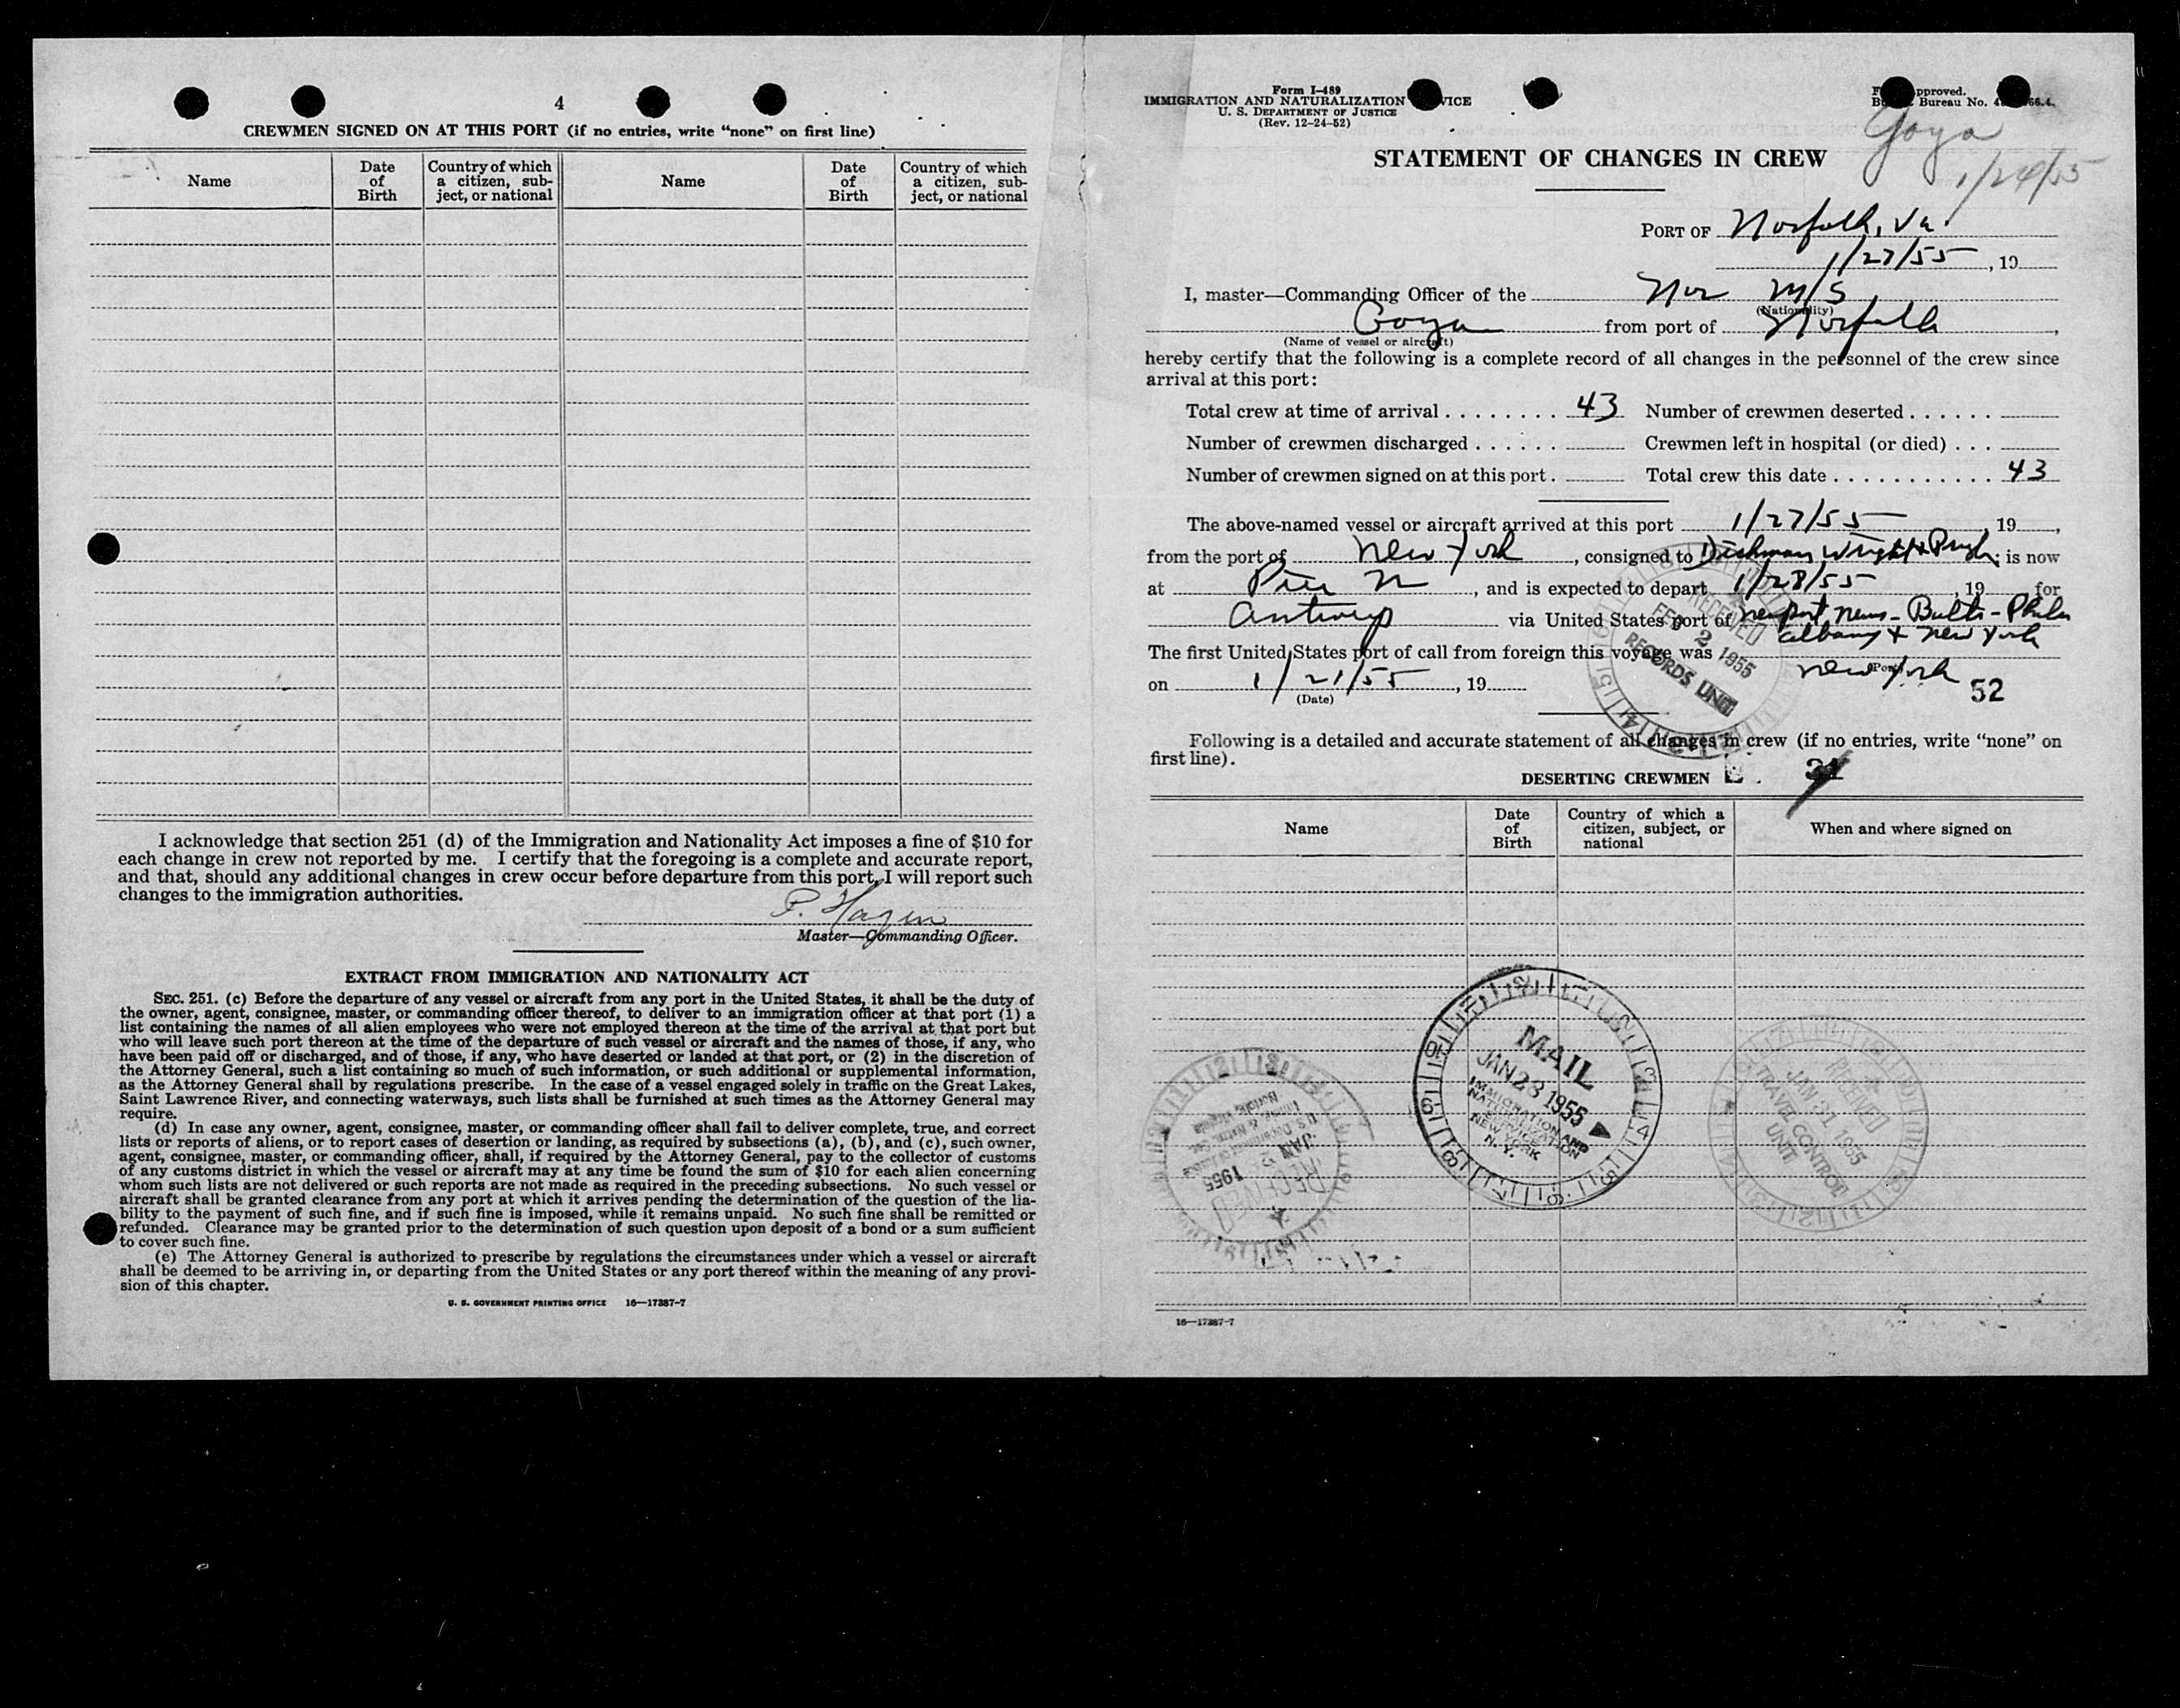 4
CREWMEN SIGNED ON AT THIS PORT (if no entries, write "none" on first line)
Name
Date of Birth
Country of which a citizen, subject, or national
Name
Date of Birth
Country of which a citizen, subject, or national
I acknowledge that section 251 (d) of the Immigration and Nationality Act imposes a fine of $10 for
each change in crew not reported by me. I certify that the foregoing is a complete and accurate report,
and that, should any additional changes in crew occur before departure from this port, I will report such
changes to the immigration authorities.
P. Hagen
Master—Commanding Officer.
EXTRACT FROM IMMIGRATION AND NATIONALITY ACT
SEC. 251. (c) Before the departure of any vessel or aircraft from any port in the United States, it shall be the duty of
the owner, agent, consignee, master, or commanding officer thereof, to deliver to an immigration officer at that port (1) a
list containing the names of all alien employees who were not employed thereon at the time of the arrival at that port but
who will leave such port thereon at the time of the departure of such vessel or aircraft and the names of those, if any, who
have been paid off or discharged, and of those, if any, who have deserted or landed at that port, or (2) in the discretion of
the Attorney General, such a list containing so much of such information, or such additional or supplemental information,
as the Attorney General shall by regulations prescribe. In the case of a vessel engaged solely in traffic on the Great Lakes,
Saint Lawrence River, and connecting waterways, such lists shall be furnished at such times as the Attorney General may
require.
(d) In case any owner, agent, consignee, master, or commanding officer shall fail to deliver complete, true, and correct
lists or reports of aliens, or to report cases of desertion or landing, as required by subsections (a), (b), and (c), such owner,
agent, consignee, master, or commanding officer, shall, if required by the Attorney General, pay to the collector of customs
of any customs district in which the vessel or aircraft may at any time be found the sum of $10 for each alien concerning
whom such lists are not delivered or such reports are not made as required in the preceding subsections. No such vessel or
aircraft shall be granted clearance from any port at which it arrives pending the determination of the question of the lia-
bility to the payment of such fine, and if such fine is imposed, while it remains unpaid. No such fine shall be remitted or
refunded. Clearance may be granted prior to the determination of such question upon deposit of a bond or a sum sufficient
to cover such fine.
(e) The Attorney General is authorized to prescribe by regulations the circumstances under which a vessel or aircraft
shall be deemed to be arriving in, or departing from the United States or any port thereof within the meaning of any provi-
sion of this chapter.
U. S. GOVERNMENT PRINTING OFFICE 16—17387-7
Form I-489
IMMIGRATION AND NATURALIZATION VICE
U. S. DEPARTMENT OF JUSTICE
(Rev. 12-24-52)
pproved.
Bureau No.
Goya
1/24/55
STATEMENT OF CHANGES IN CREW
PORT OF Norfolk, Va.
1/27/55, 19
I, master—Commanding Officer of the Nor M/S
(Nationality)
Goya from port of Norfolk,
(Name of vessel or aircraft)
hereby certify that the following is a complete record of all changes in the personnel of the crew since
arrival at this port:
Total crew at time of arrival . . . . . . . . 43 Number of crewmen deserted . . . . . .
Number of crewmen discharged . . . . . . Crewmen left in hospital (or died) . . .
Number of crewmen signed on at this port . Total crew this date . . . . . . . . . . . 43
The above-named vessel or aircraft arrived at this port 1/27/55, 19,
from the port of New York, consigned to Dichmann Wright & Pugh; is now
at Pier N, and is expected to depart 1/28/55, 19 for
Antwerp via United States port of Newport News - Balto - Phila
Albany & New York
The first United States port of call from foreign this voyage was
New York
(Port)
on 1/21/55, 19
(Date)
52
RECEIVED
FEB 2 1955
RECORDS UNIT
Following is a detailed and accurate statement of all changes in crew (if no entries, write "none" on
first line).
DESERTING CREWMEN
Name
Date of Birth
Country of which a citizen, subject, or national
When and where signed on
MAIL
JAN 28 1955
IMMIGRATION AND
NATURALIZATION
SERVICE
NEW YORK
N. Y.
RECEIVED
JAN 31 1955
TRAVEL CONTROL
UNIT
RECEIVED
JAN
1955
16—17387-7